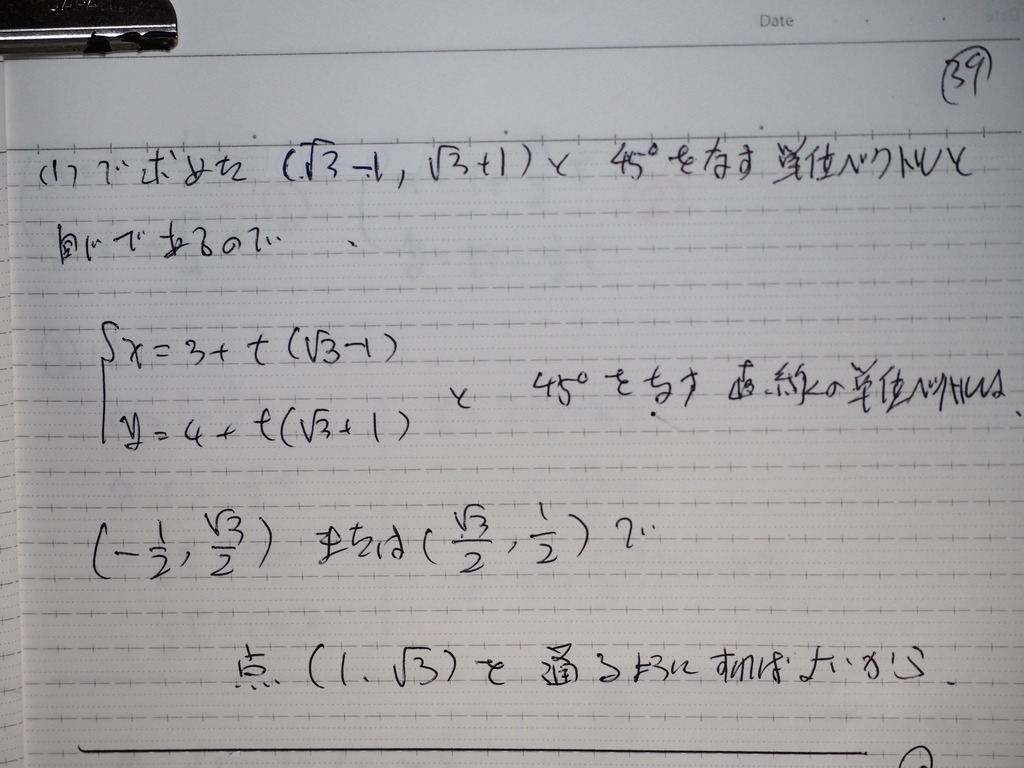 Date
(39)
(1)で求めた (√3-1, √3+1)と 45°をなす 単位ベクトルと
同じであるので、
{x=3+t(√3-1)
y=4+t(√3+1) と 45°をなす 直線の単位ベクトルは、
(-1/2, √3/2) または (√3/2, 1/2) で
点 (1. √3)を 通るように すればよいから.